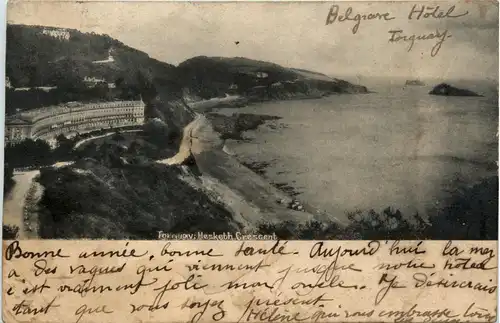 Belgrave Hôtel
Torquay
Torquay: Hesketh Crescent
Bonne année, bonne santé. Aujourd'hui la mer
a des vagues qui viennent jusqu'à notre hôtel
c'est vraiment joli mon oncle. Je désirerais
tant que vous soyez présent
Hélène qui vous embrasse